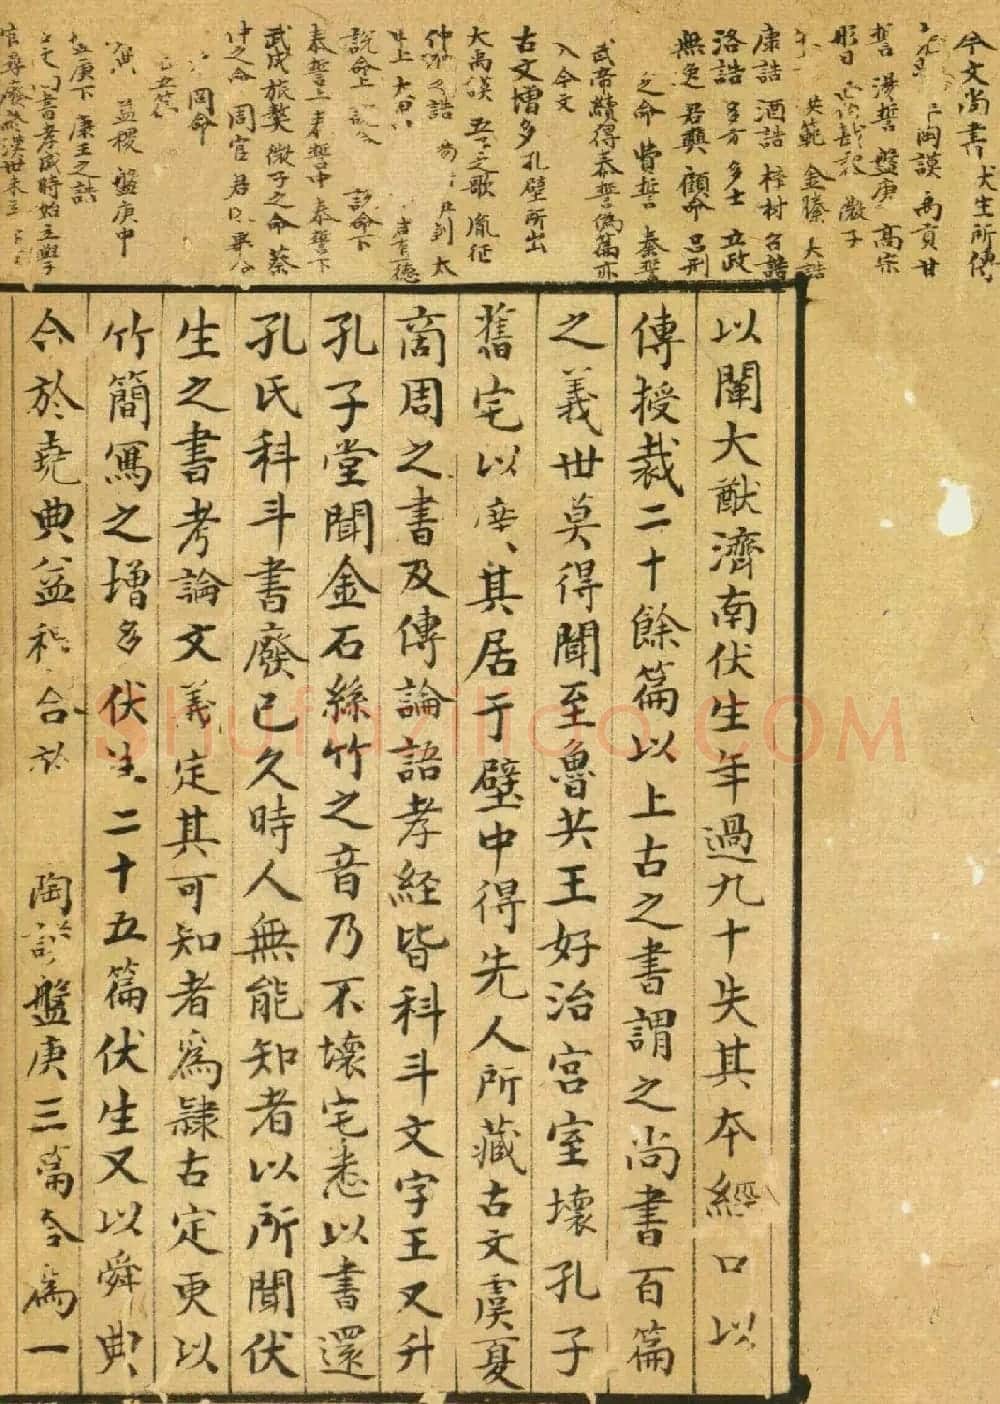 今文尚書 伏生所傳
陶謨 禹貢 甘
誓 湯誓 盤庚 高宗
肜日 戡 微子
洪範 金縢 大誥
康誥 酒誥 梓材 召誥
洛誥 多方 多士 立政
無逸 君奭 顧命 呂刑
之命 費誓 秦誓
武帝續得泰誓偽篇亦
入今文
古文增多孔壁所出
大禹謨 五子之歌 胤征
仲虺之誥 太
甲上 咸有一德
說命上 說命下
泰誓上 泰誓中 泰誓下
武成 旅獒 微子之命 蔡
仲之命 周官 君
冏命
益稷 盤庚中
盤庚下 康王之誥
書孝成時始立學
官尋廢
以闡大猷濟南伏生年過九十失其本經口以
傳授裁二十餘篇以上古之書謂之尚書百篇
之義世莫得聞至魯共王好治宮室壞孔子
舊宅以廣其居于壁中得先人所藏古文虞夏
商周之書及傳論語孝經皆科斗文字王又升
孔子堂聞金石絲竹之音乃不壞宅悉以書還
孔氏科斗書廢已久時人無能知者以所聞伏
生之書考論文義定其可知者為隸古定更以
竹簡寫之增多伏生二十五篇伏生又以舜典
合於堯典益稷合於 陶謨盤庚三篇合為一
Shufaziliao.COM